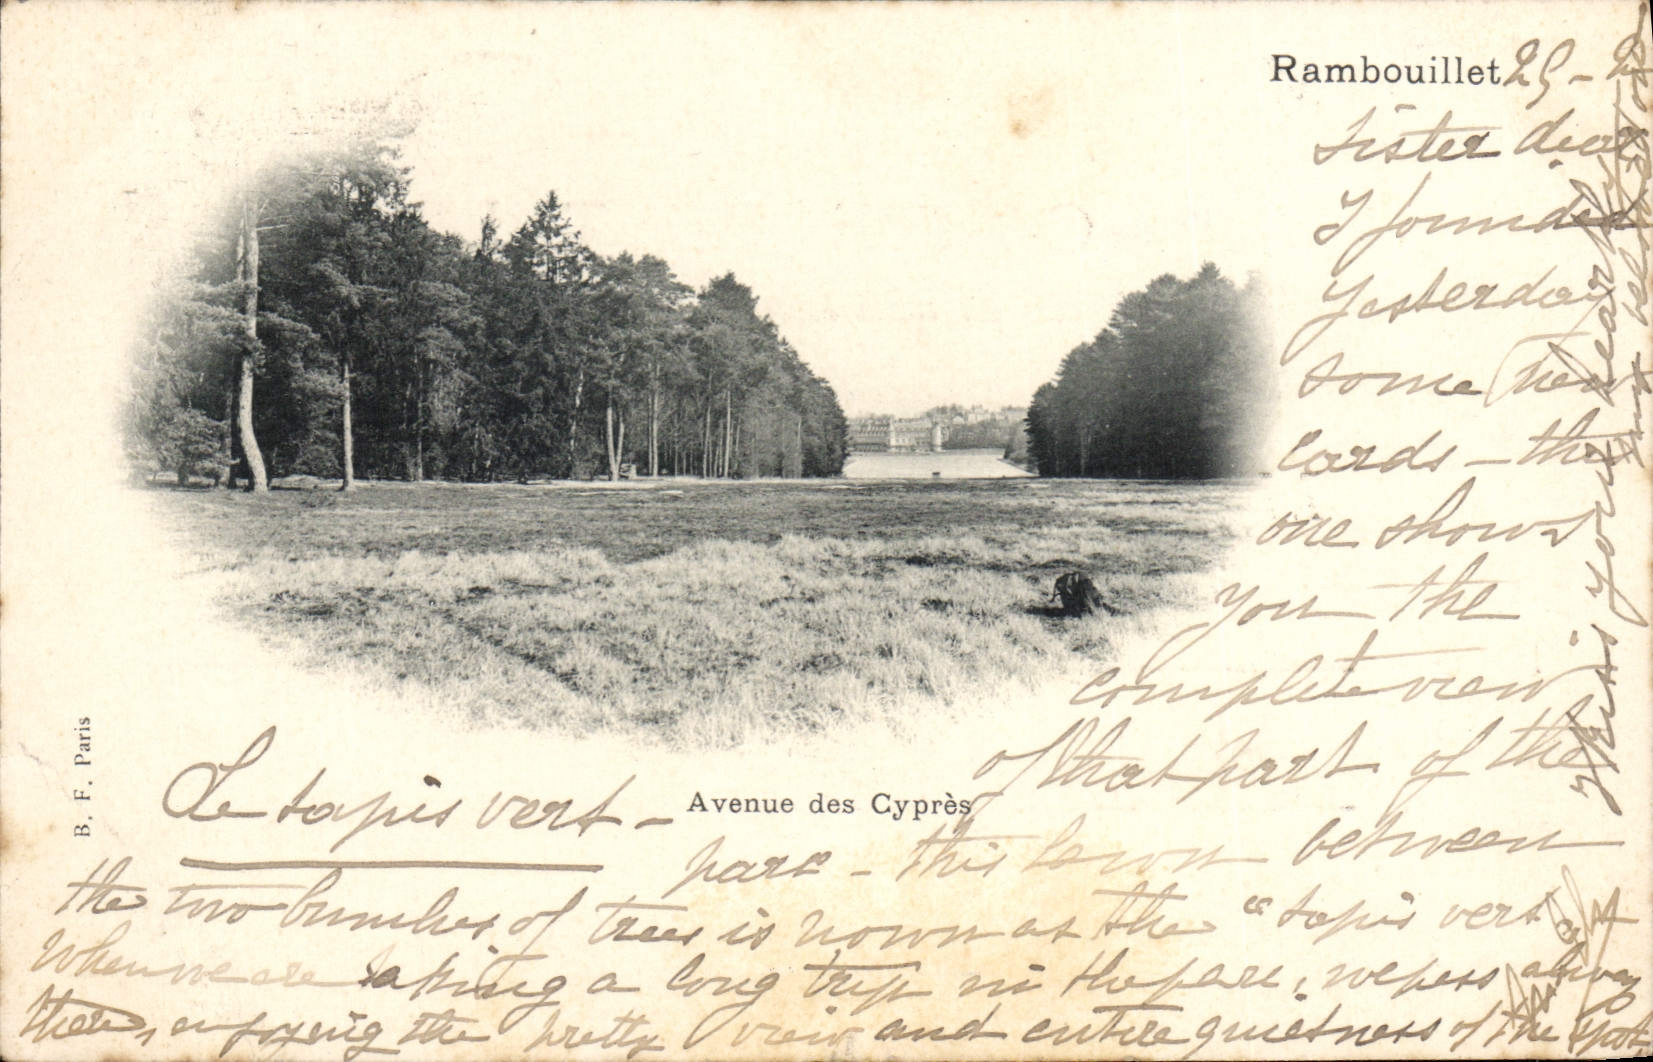 Rambouillet 25 -
Sister dear
I found
yesterday
some new
cards - the
one shows
you the
complete view
of that part of the
Le tapis vert -
Avenue des Cyprès
parc - this lawn between
the two bunches of trees is nown as the "tapis vert
when we are taking a long trip in the parc, we pass always
there, enjoying the pretty view and entire quietness of the spot.
I kiss you heartily
B. F. Paris